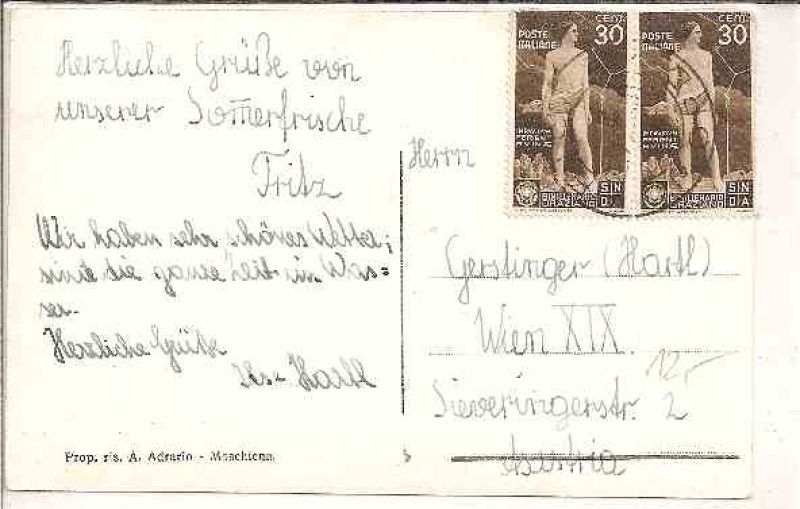 Herzliche Grüße von
unserer Som̅erfrische
Fritz
Wir haben sehr schönes Wetter;
sind die ganze Zeit im Was=
ser.
Herzliche Grüße
Hartl
Prop. ris. A. Adrario - Moschiena
Herrn
Gerstinger (Hartl)
Wien XIX.
Sieveringerstr. 2
Austria
12,-
CEM. 30
POSTE ITALIANE
BIMILLENARIO ORAZIANO
CEM. 30
POSTE ITALIANE
BIMILLENARIO ORAZIANO